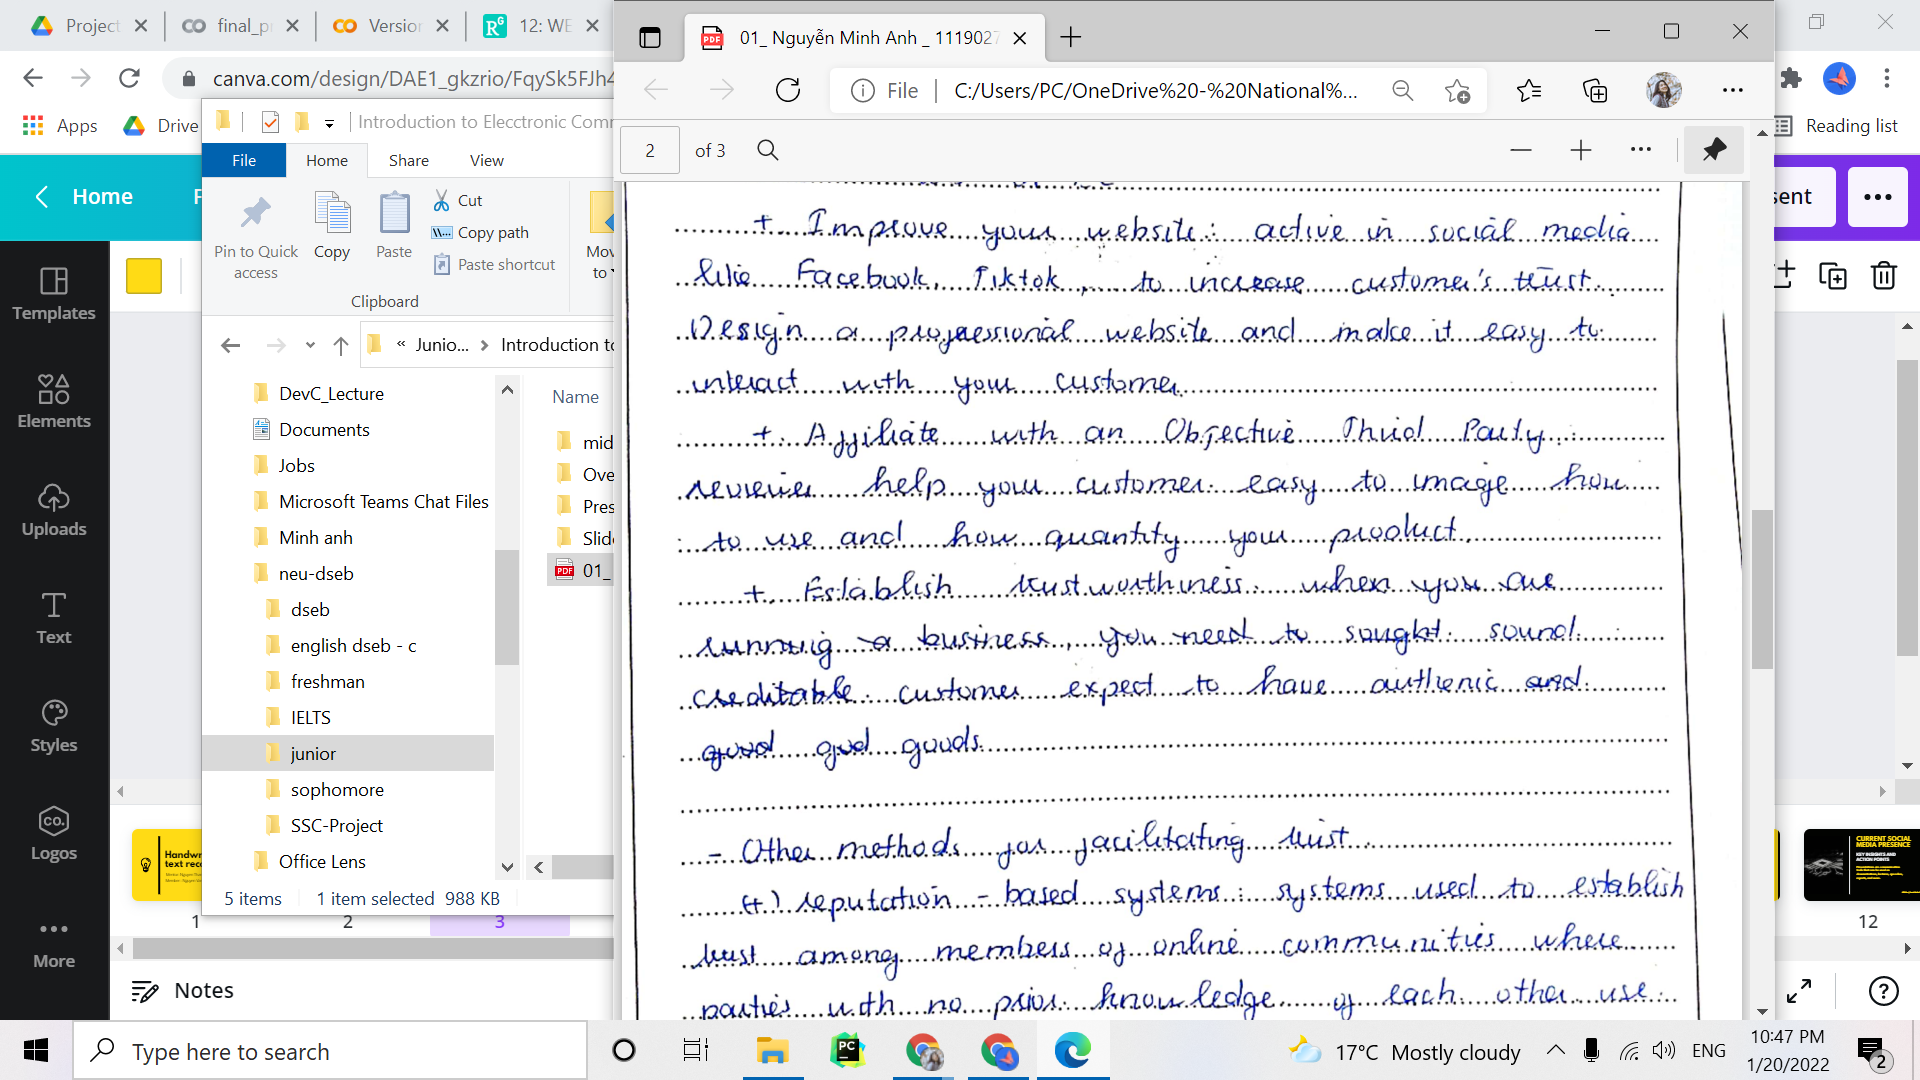 Project
final_p
Version
12: WE
canva.com/design/DAE1_gkzrio/FqySk5FJh4
Apps
Drive
Reading list
Home
sent
Templates
Elements
Uploads
Text
Styles
Logos
More
Introduction to Elecctronic Com
File
Home
Share
View
Pin to Quick access
Copy
Paste
Cut
Copy path
Paste shortcut
Mov
to
Clipboard
« Junio... > Introduction to
DevC_Lecture
Documents
Jobs
Microsoft Teams Chat Files
Minh anh
neu-dseb
dseb
english dseb - c
freshman
IELTS
junior
sophomore
SSC-Project
Office Lens
Name
mid
Ove
Pres
Slid
01_
5 items
1 item selected 988 KB
Handwr
text reco
1
2
3
12
CURRENT SOCIAL
MEDIA PRESENCE
KEY INSIGHTS AND
ACTION POINTS
Notes
01_ Nguyễn Minh Anh _ 1119027
File
C:/Users/PC/OneDrive%20-%20National%...
2 of 3
+ Improve your website: active in social media
like Facebook, Tiktok, to increase customer's trust.
Design a professional website and make it easy to
interact with your customer
+ Affiliate with an Objective Third Party:
reviewer help your customer easy to image how
to use and how quantity your product.
+ Establish trustworthiness: when you are
running a business, you need to sought sound
creditable: customer expect to have authenic and
good god goods.
- Other methods for facilitating trust.
(+) reputation - based systems: systems used to establish
trust among members of online communities where
parties with no prior knowledge of each other use
Type here to search
17°C Mostly cloudy
ENG
10:47 PM
1/20/2022
2